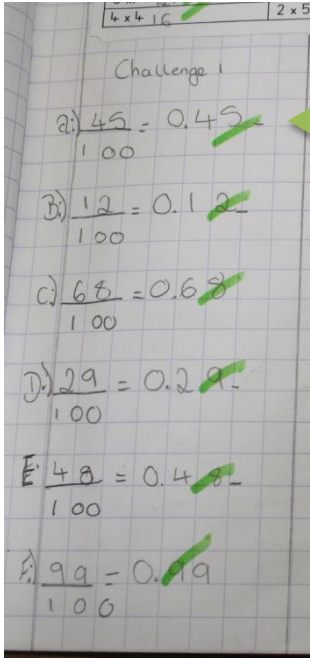 4 x 4 16 2 x 5
Challenge 1
a:) 45/100 = 0.45
B:) 12/100 = 0.12
C:) 68/100 = 0.68
D:) 29/100 = 0.29
E: 48/100 = 0.48
F:) 99/100 = 0.99